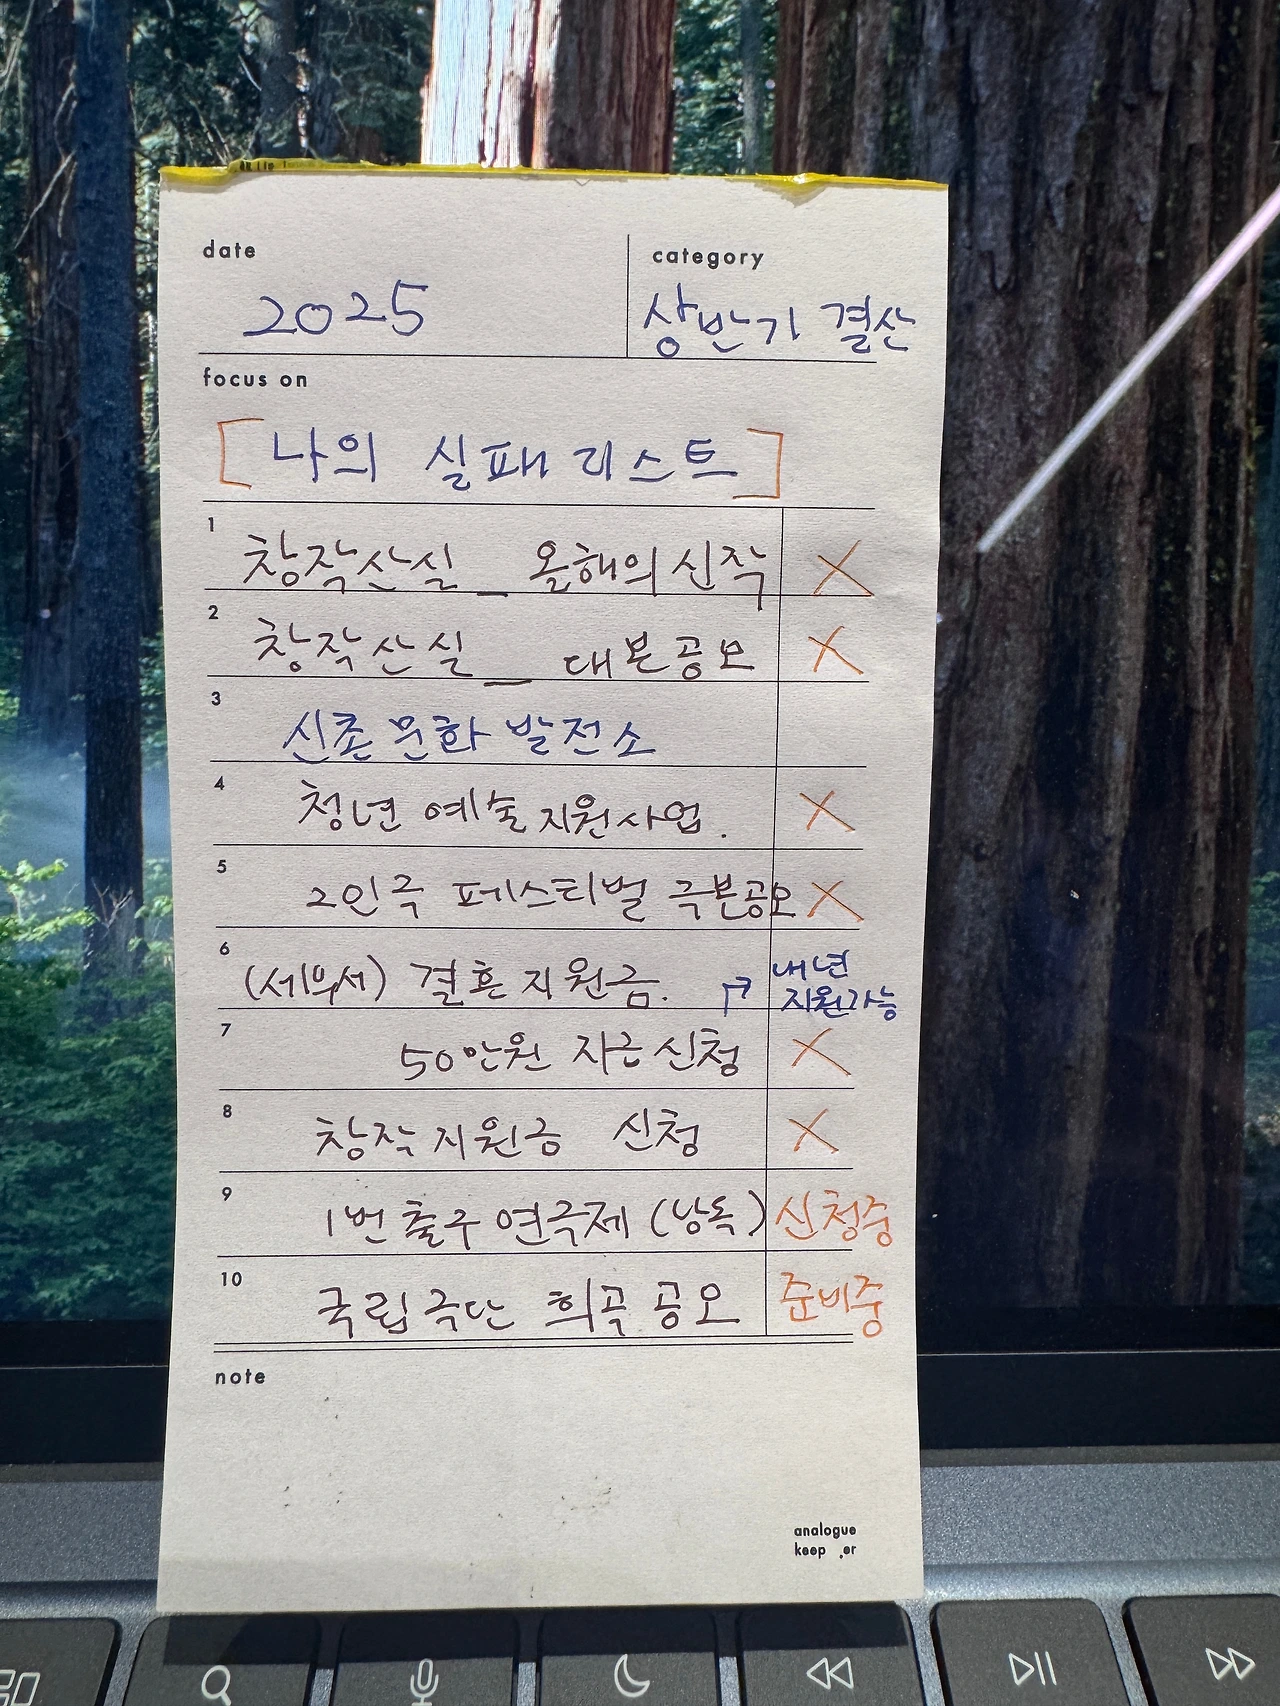 date
category
2025
상반기 결산
focus on
[나의 실패 리스트]
1 창작산실_올해의 신작 X
2 창작산실_대본공모 X
3 신촌 문화 발전소
4 청년 예술지원사업. X
5 2인극 페스티벌 극본공모 X
6 (세액서) 결혼지원금. → 내년 지원가능
7 50만원 지금신청 X
8 창작지원금 신청 X
9 1번출구 연극제 (낭독) 신청중
10 국립극단 희곡 공모 준비중
note
analogue
keep er